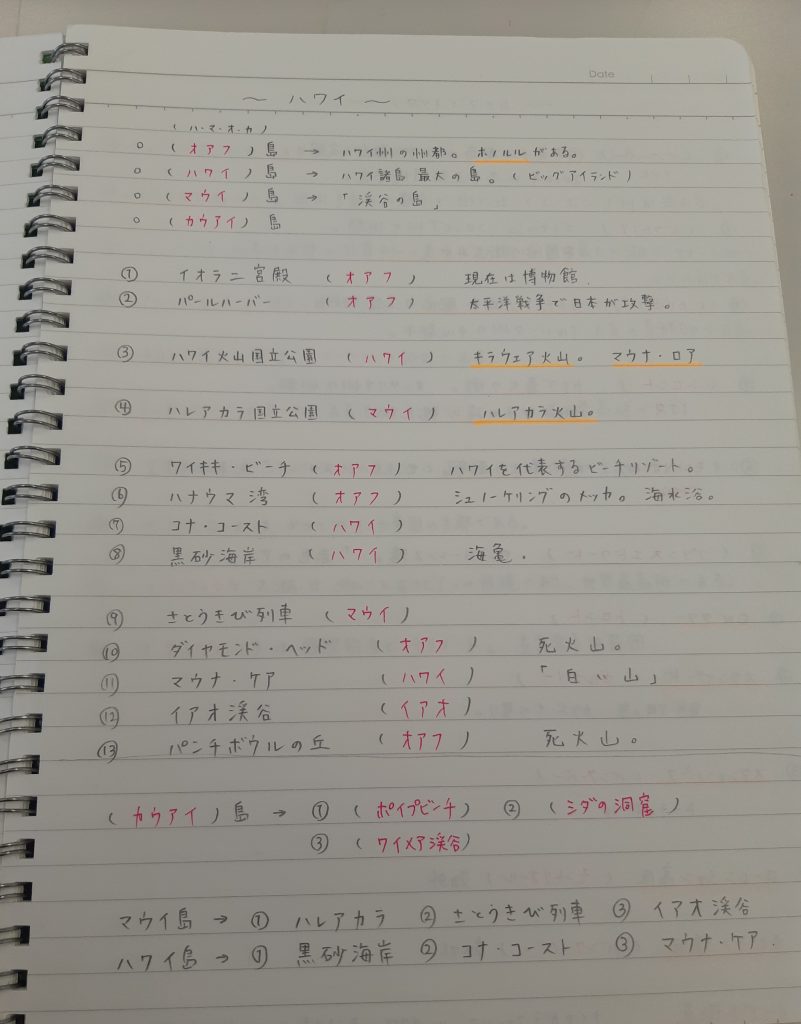 Date
～ ハワイ ～
(ハ・マ・オ・カ)
○ (オアフ) 島 → ハワイ州の州都。ホノルルがある。
○ (ハワイ) 島 → ハワイ諸島 最大の島。(ビッグアイランド)
○ (マウイ) 島 → 「渓谷の島」
○ (カウアイ) 島
① イオラニ宮殿 (オアフ) 現在は博物館.
② パールハーバー (オアフ) 太平洋戦争で日本が攻撃。
③ ハワイ火山国立公園 (ハワイ) キラウェア火山。 マウナ・ロア
④ ハレアカラ国立公園 (マウイ) ハレアカラ火山。
⑤ ワイキキ・ビーチ (オアフ) ハワイを代表するビーチリゾート。
⑥ ハナウマ湾 (オアフ) シュノーケリングのメッカ。海水浴。
⑦ コナ・コースト (ハワイ)
⑧ 黒砂海岸 (ハワイ) 海亀.
⑨ さとうきび列車 (マウイ)
⑩ ダイヤモンド・ヘッド (オアフ) 死火山。
⑪ マウナ・ケア (ハワイ) 「白い山」
⑫ イアオ渓谷 (イアオ)
⑬ パンチボウルの丘 (オアフ) 死火山。
(カウアイ) 島 → ① (ポイプビーチ) ② (シダの洞窟)
③ (ワイメア渓谷)
マウイ島 → ① ハレアカラ ② さとうきび列車 ③ イアオ渓谷
ハワイ島 → ① 黒砂海岸 ② コナ・コースト ③ マウナ・ケア.